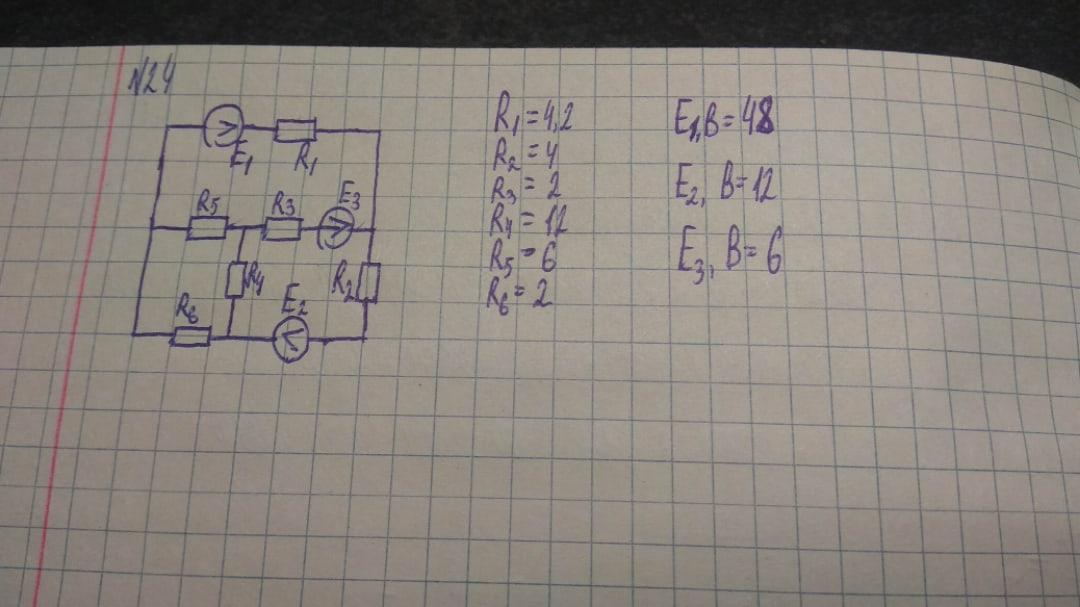 N24
E1
R1
R5
R3
E3
R4
R2
R6
E2
R1 = 4,2
R2 = 4
R3 = 2
R4 = 12
R5 = 6
R6 = 2
E1, B = 48
E2, B = 12
E3, B = 6